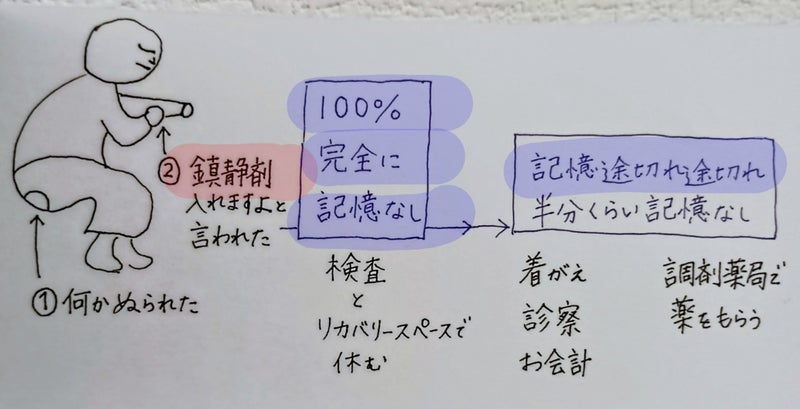 ①何かぬられた
②鎮静剤
入れますよと
言われた
100%
完全に
記憶なし
検査
と
リカバリースペースで
休む
記憶途切れ途切れ
半分くらい記憶なし
着がえ
診察
お会計
調剤薬局で
薬をもらう